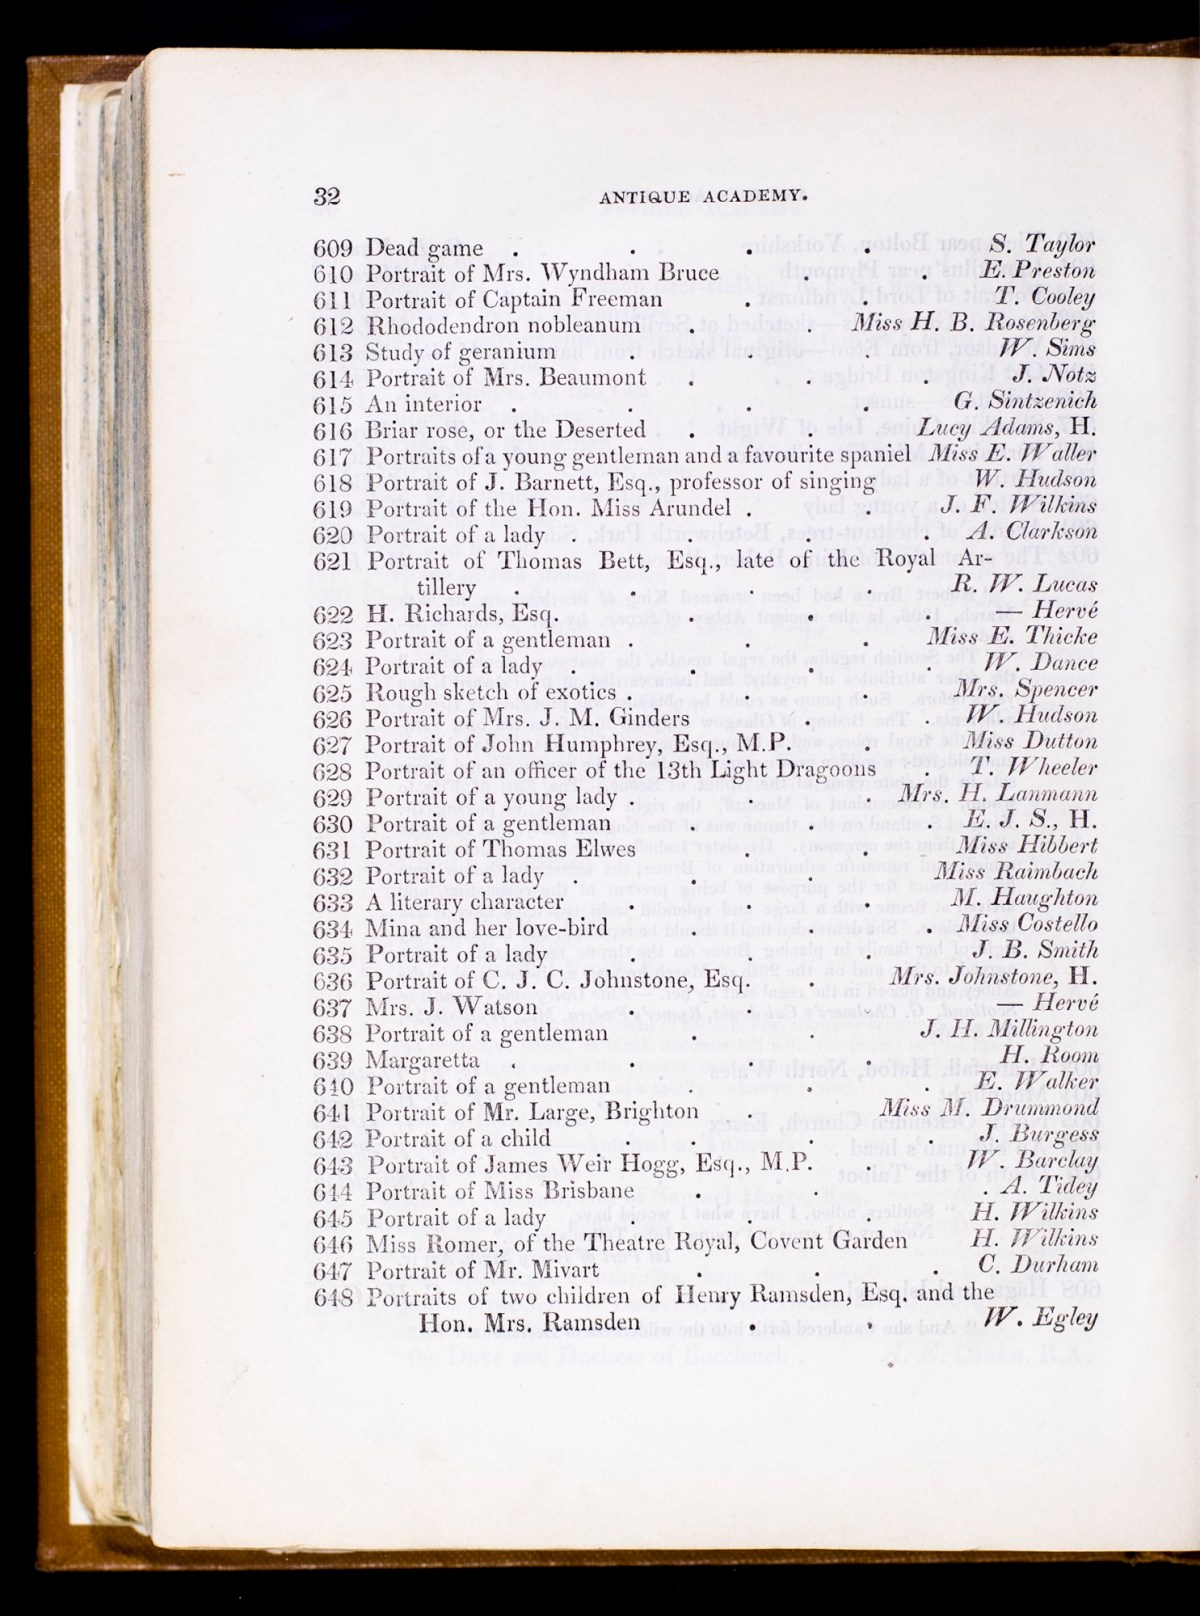 32 ANTIQUE ACADEMY.
609 Dead game . . . . S. Taylor
610 Portrait of Mrs. Wyndham Bruce . . E. Preston
611 Portrait of Captain Freeman . . T. Cooley
612 Rhododendron nobleanum . . Miss H. B. Rosenberg
613 Study of geranium . . . W. Sims
614 Portrait of Mrs. Beaumont . . . J. Notz
615 An interior . . . . G. Sintzenich
616 Briar rose, or the Deserted . . Lucy Adams, H.
617 Portraits of a young gentleman and a favourite spaniel Miss E. Waller
618 Portrait of J. Barnett, Esq., professor of singing W. Hudson
619 Portrait of the Hon. Miss Arundel . . J. F. Wilkins
620 Portrait of a lady . . . . A. Clarkson
621 Portrait of Thomas Bett, Esq., late of the Royal Ar-
tillery . . . . R. W. Lucas
622 H. Richards, Esq. . . . — Hervé
623 Portrait of a gentleman . . . Miss E. Thicke
624 Portrait of a lady . . . . W. Dance
625 Rough sketch of exotics . . . Mrs. Spencer
626 Portrait of Mrs. J. M. Ginders . . W. Hudson
627 Portrait of John Humphrey, Esq., M.P. . Miss Dutton
628 Portrait of an officer of the 13th Light Dragoons . T. Wheeler
629 Portrait of a young lady . . Mrs. H. Lanmann
630 Portrait of a gentleman . . . E. J. S., H.
631 Portrait of Thomas Elwes . . Miss Hibbert
632 Portrait of a lady . . . Miss Raimbach
633 A literary character . . . M. Haughton
634 Mina and her love-bird . . . Miss Costello
635 Portrait of a lady . . . J. B. Smith
636 Portrait of C. J. C. Johnstone, Esq. . Mrs. Johnstone, H.
637 Mrs. J. Watson . . . — Hervé
638 Portrait of a gentleman . . J. H. Millington
639 Margaretta . . . . H. Room
640 Portrait of a gentleman . . . E. Walker
641 Portrait of Mr. Large, Brighton . Miss M. Drummond
642 Portrait of a child . . . . J. Burgess
643 Portrait of James Weir Hogg, Esq., M.P. . W. Barclay
644 Portrait of Miss Brisbane . . . A. Tidey
645 Portrait of a lady . . . H. Wilkins
646 Miss Romer, of the Theatre Royal, Covent Garden H. Wilkins
647 Portrait of Mr. Mivart . . . C. Durham
648 Portraits of two children of Henry Ramsden, Esq. and the
Hon. Mrs. Ramsden . . W. Egley